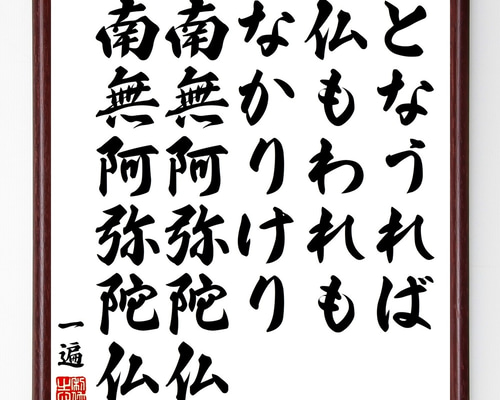 となうれば
仏もわれも
なかりけり
南無阿弥陀仏
南無阿弥陀仏
一遍